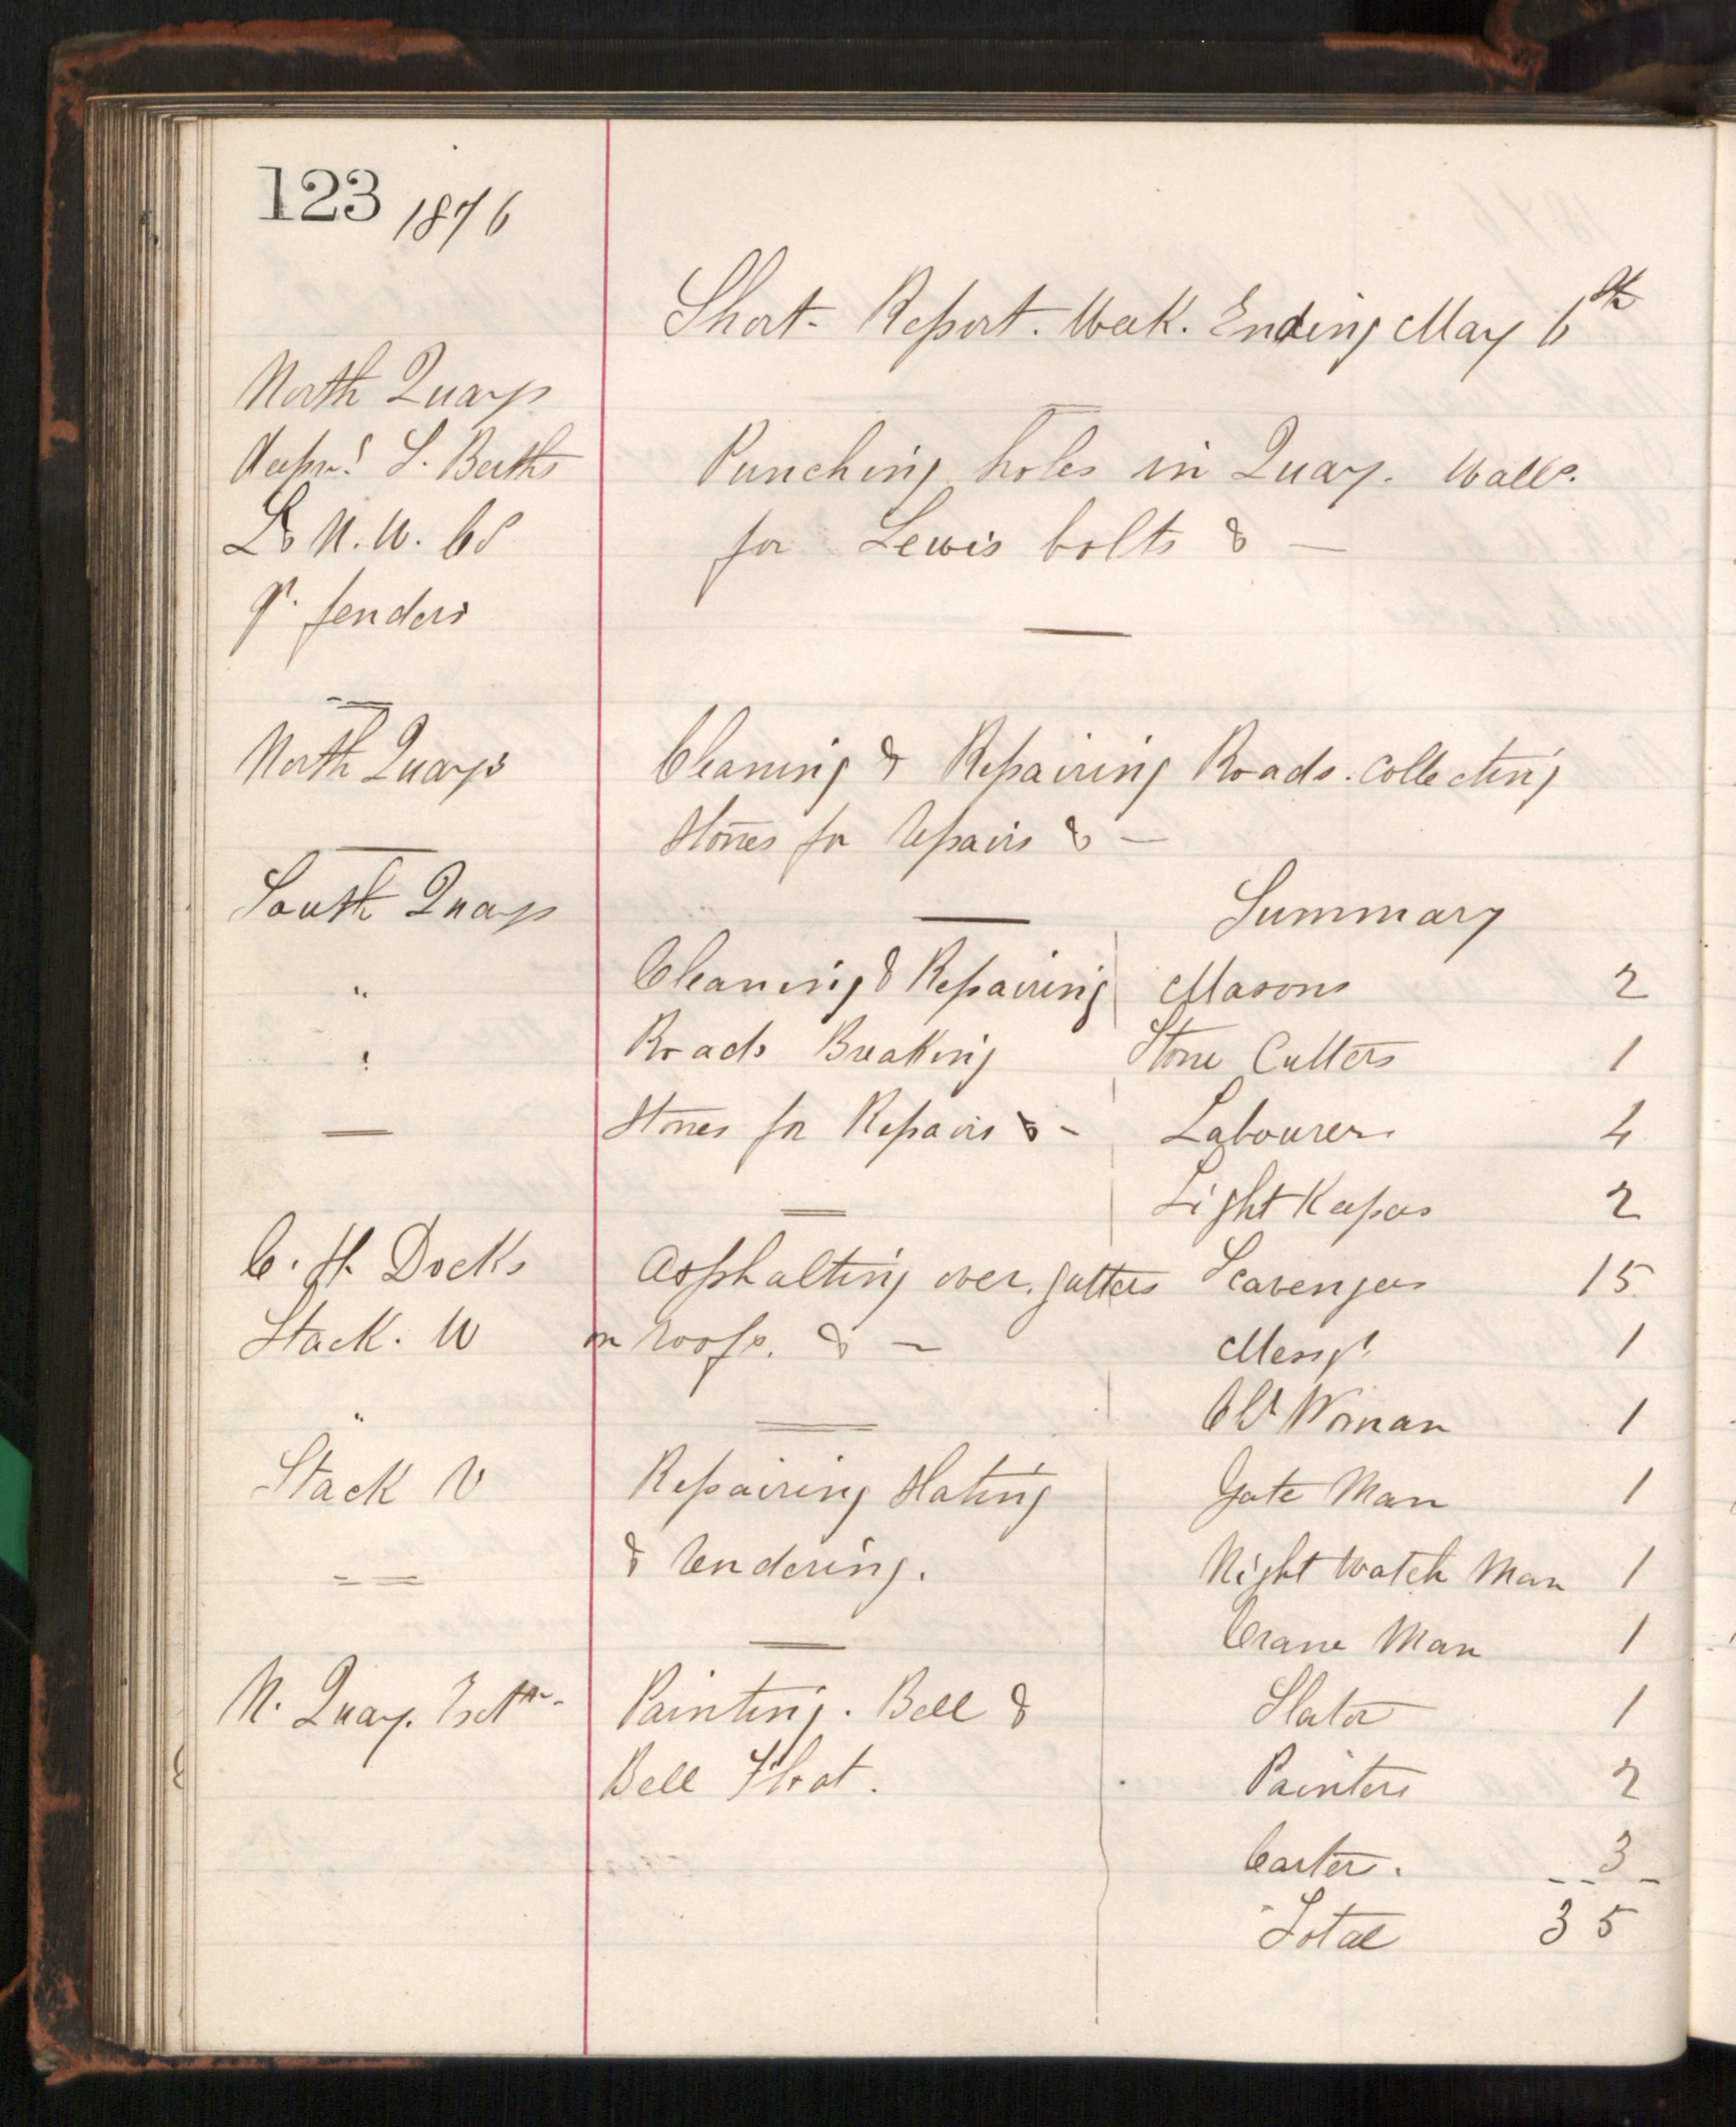 123 1876
Short Report. Week. Ending May 6th
North Quays
Deepng S. Berths
L & N. W. Co
pr. fenders
Punching holes in Quay. Walls.
for Lewis bolts & —
North Quays
Cleaning & Repairing Roads. Collecting
Stones for repairs & —
South Quays
"
"
Cleaning & Repairing
Roads Breaking
Stones for Repairs & -
C. H. Docks
Stack. W
Asphalting over gutters
on roofs. & —
"
Stack V
Repairing Slating
& rendering.
N. Quay. Extn.
Painting. Bell &
Bell Float.
Summary
Masons 2
Stone Cutters 1
Labourers 4
Light Keepers 2
Scavengers 15
Messgr 1
Clg Woman 1
Gate Man 1
Night Watch Man 1
Crane Man 1
Slator 1
Painters 2
Carters. 3
Total 35